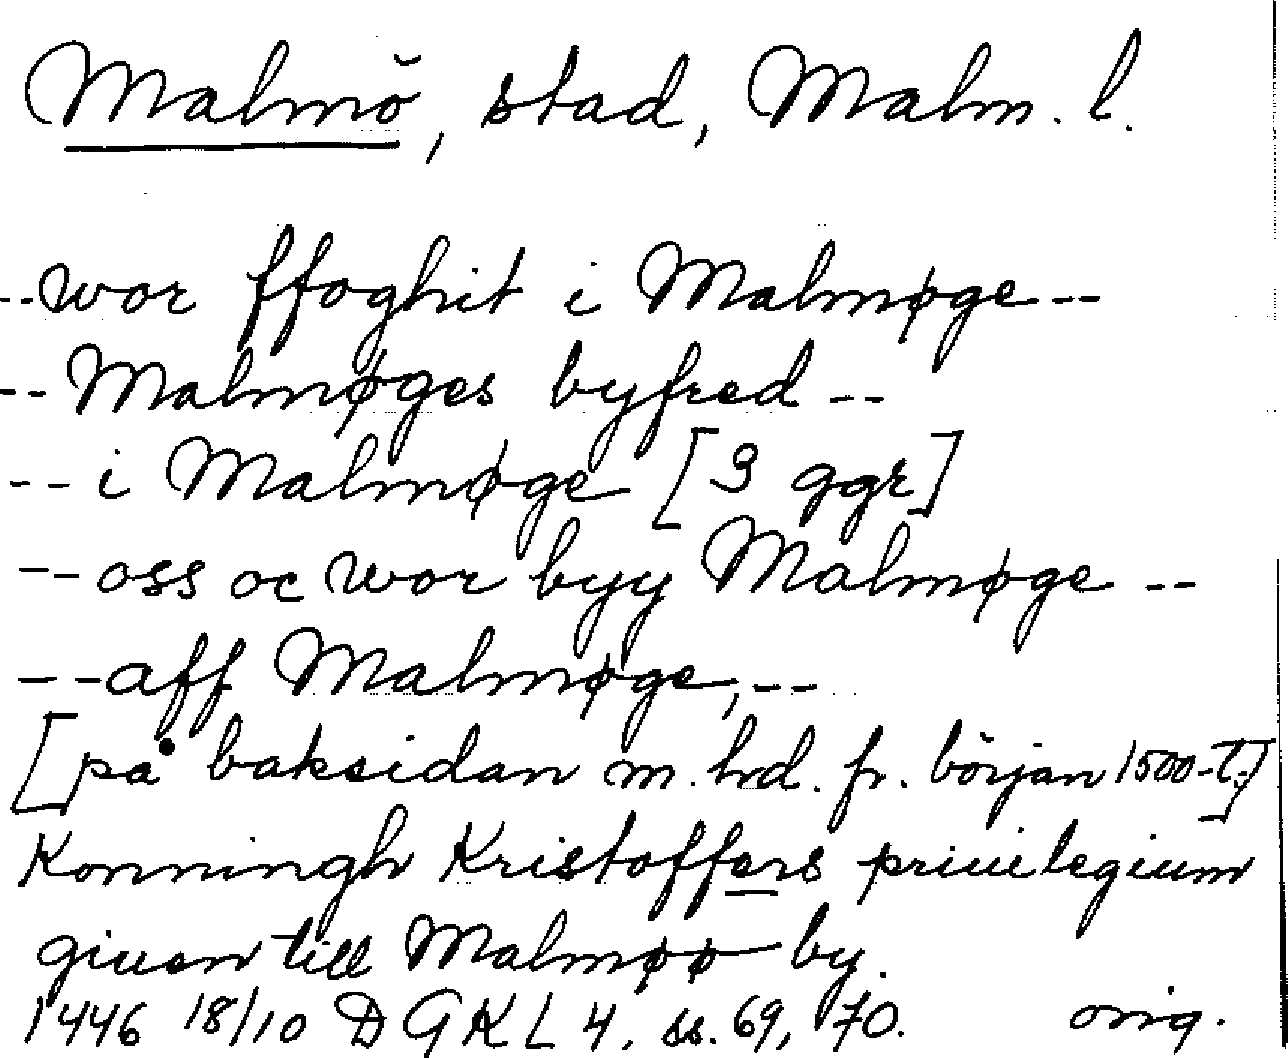 Malmö, stad, Malm. l.
--wor ffoghit i Malmøge--
--Malmøges byfred --
--i Malmøge [3 ggr]
--oss oc wor byy Malmøge --
--aff Malmøge,--
[på baksidan m. hd. fr. början 1500-t.]
Konningh Kristoffers priuilegium
giuen till Malmøø by.
1446 18/10 DGKL 4, ss. 69, 70. orig.